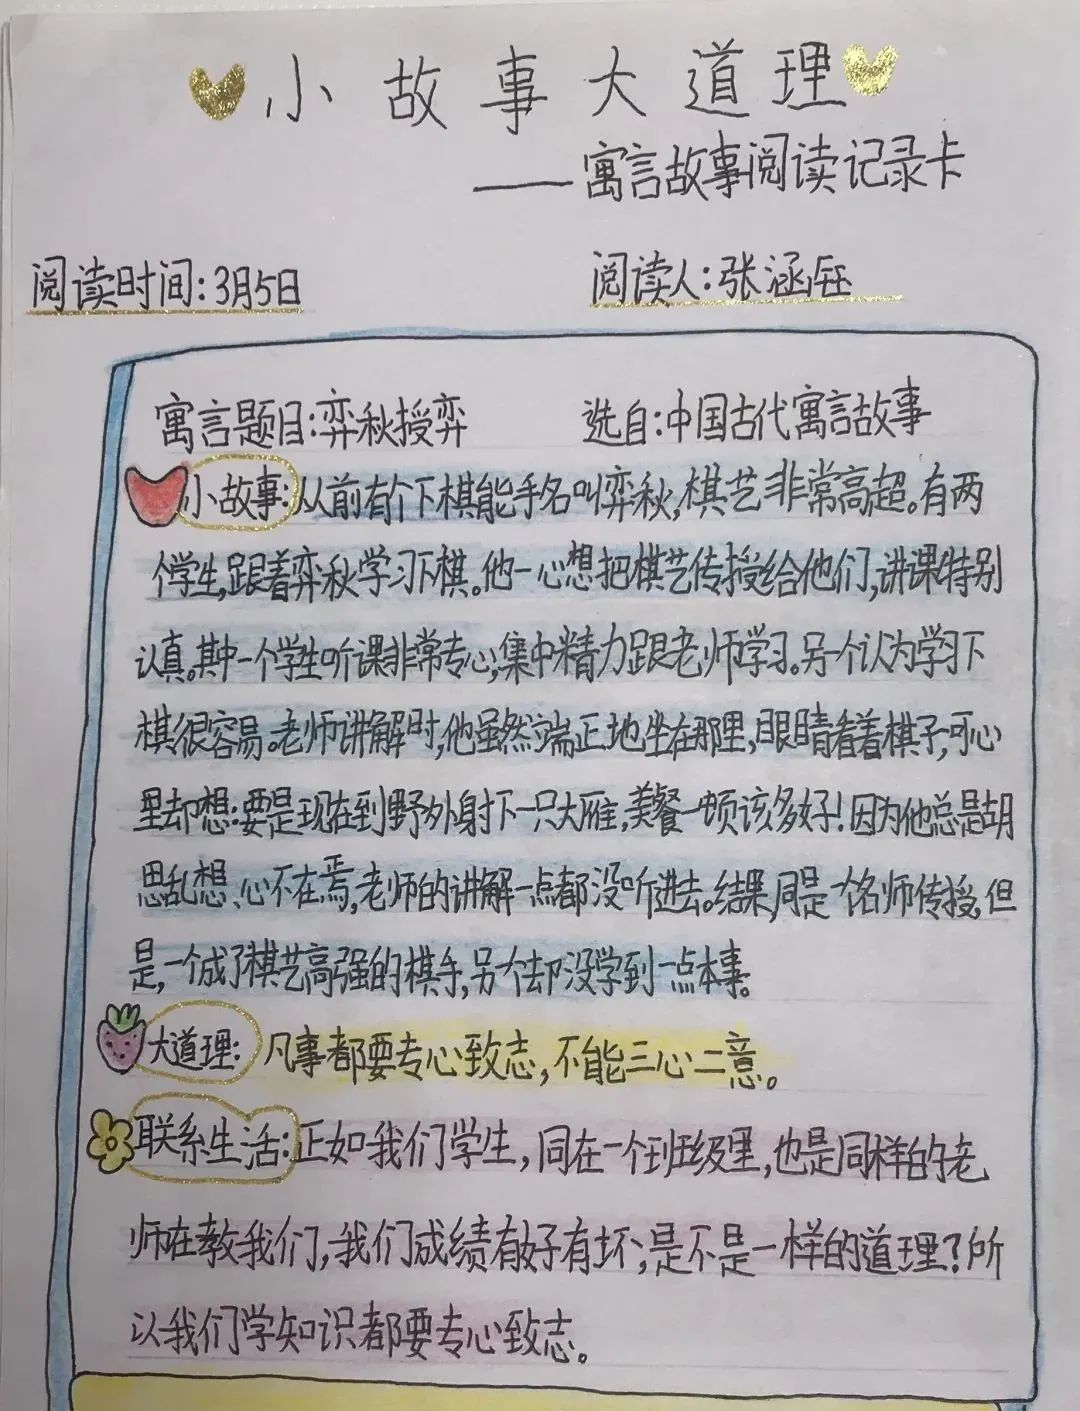 小故事大道理
——寓言故事阅读记录卡
阅读时间:3月5日 阅读人:张涵钰
寓言题目:弈秋授弈 选自:中国古代寓言故事
小故事:从前有个下棋能手名叫弈秋,棋艺非常高超。有两
个学生,跟着弈秋学习下棋。他一心想把棋艺传授给他们,讲课特别
认真。其中一个学生听课非常专心,集中精力跟老师学习。另一个认为学习下
棋很容易。老师讲解时,他虽然端正地坐在那里,眼睛看着棋子,可心
里却想:要是现在到野外射下一只大雁,美餐一顿该多好!因为他总是胡
思乱想、心不在焉,老师的讲解一点都没听进去。结果,同是一个名师传授,但
是,一个成了棋艺高强的棋手,另个却没学到一点本事。
大道理:凡事都要专心致志,不能三心二意。
联系生活:正如我们学生,同在一个班级里,也是同样的老
师在教我们,我们成绩有好有坏,是不是一样的道理?所
以我们学知识都要专心致志。